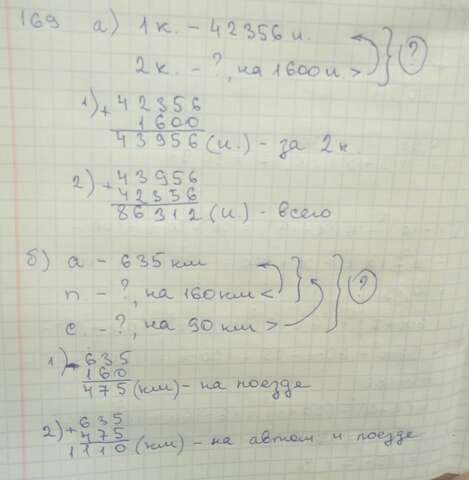 169 а) 1 к. – 42356 и.
2 к. – ?, на 1600 и > ?
1) + 42356
1600
43956 (и.) – за 2 к.
2) + 43956
42356
86312 (и.) – всего
б) а – 635 км
п – ?, на 160 км < ?
с. – ?, на 90 км >
1) - 635
160
475 (км) – на поезде
2) + 635
475
1110 (км) – на автом и поезде